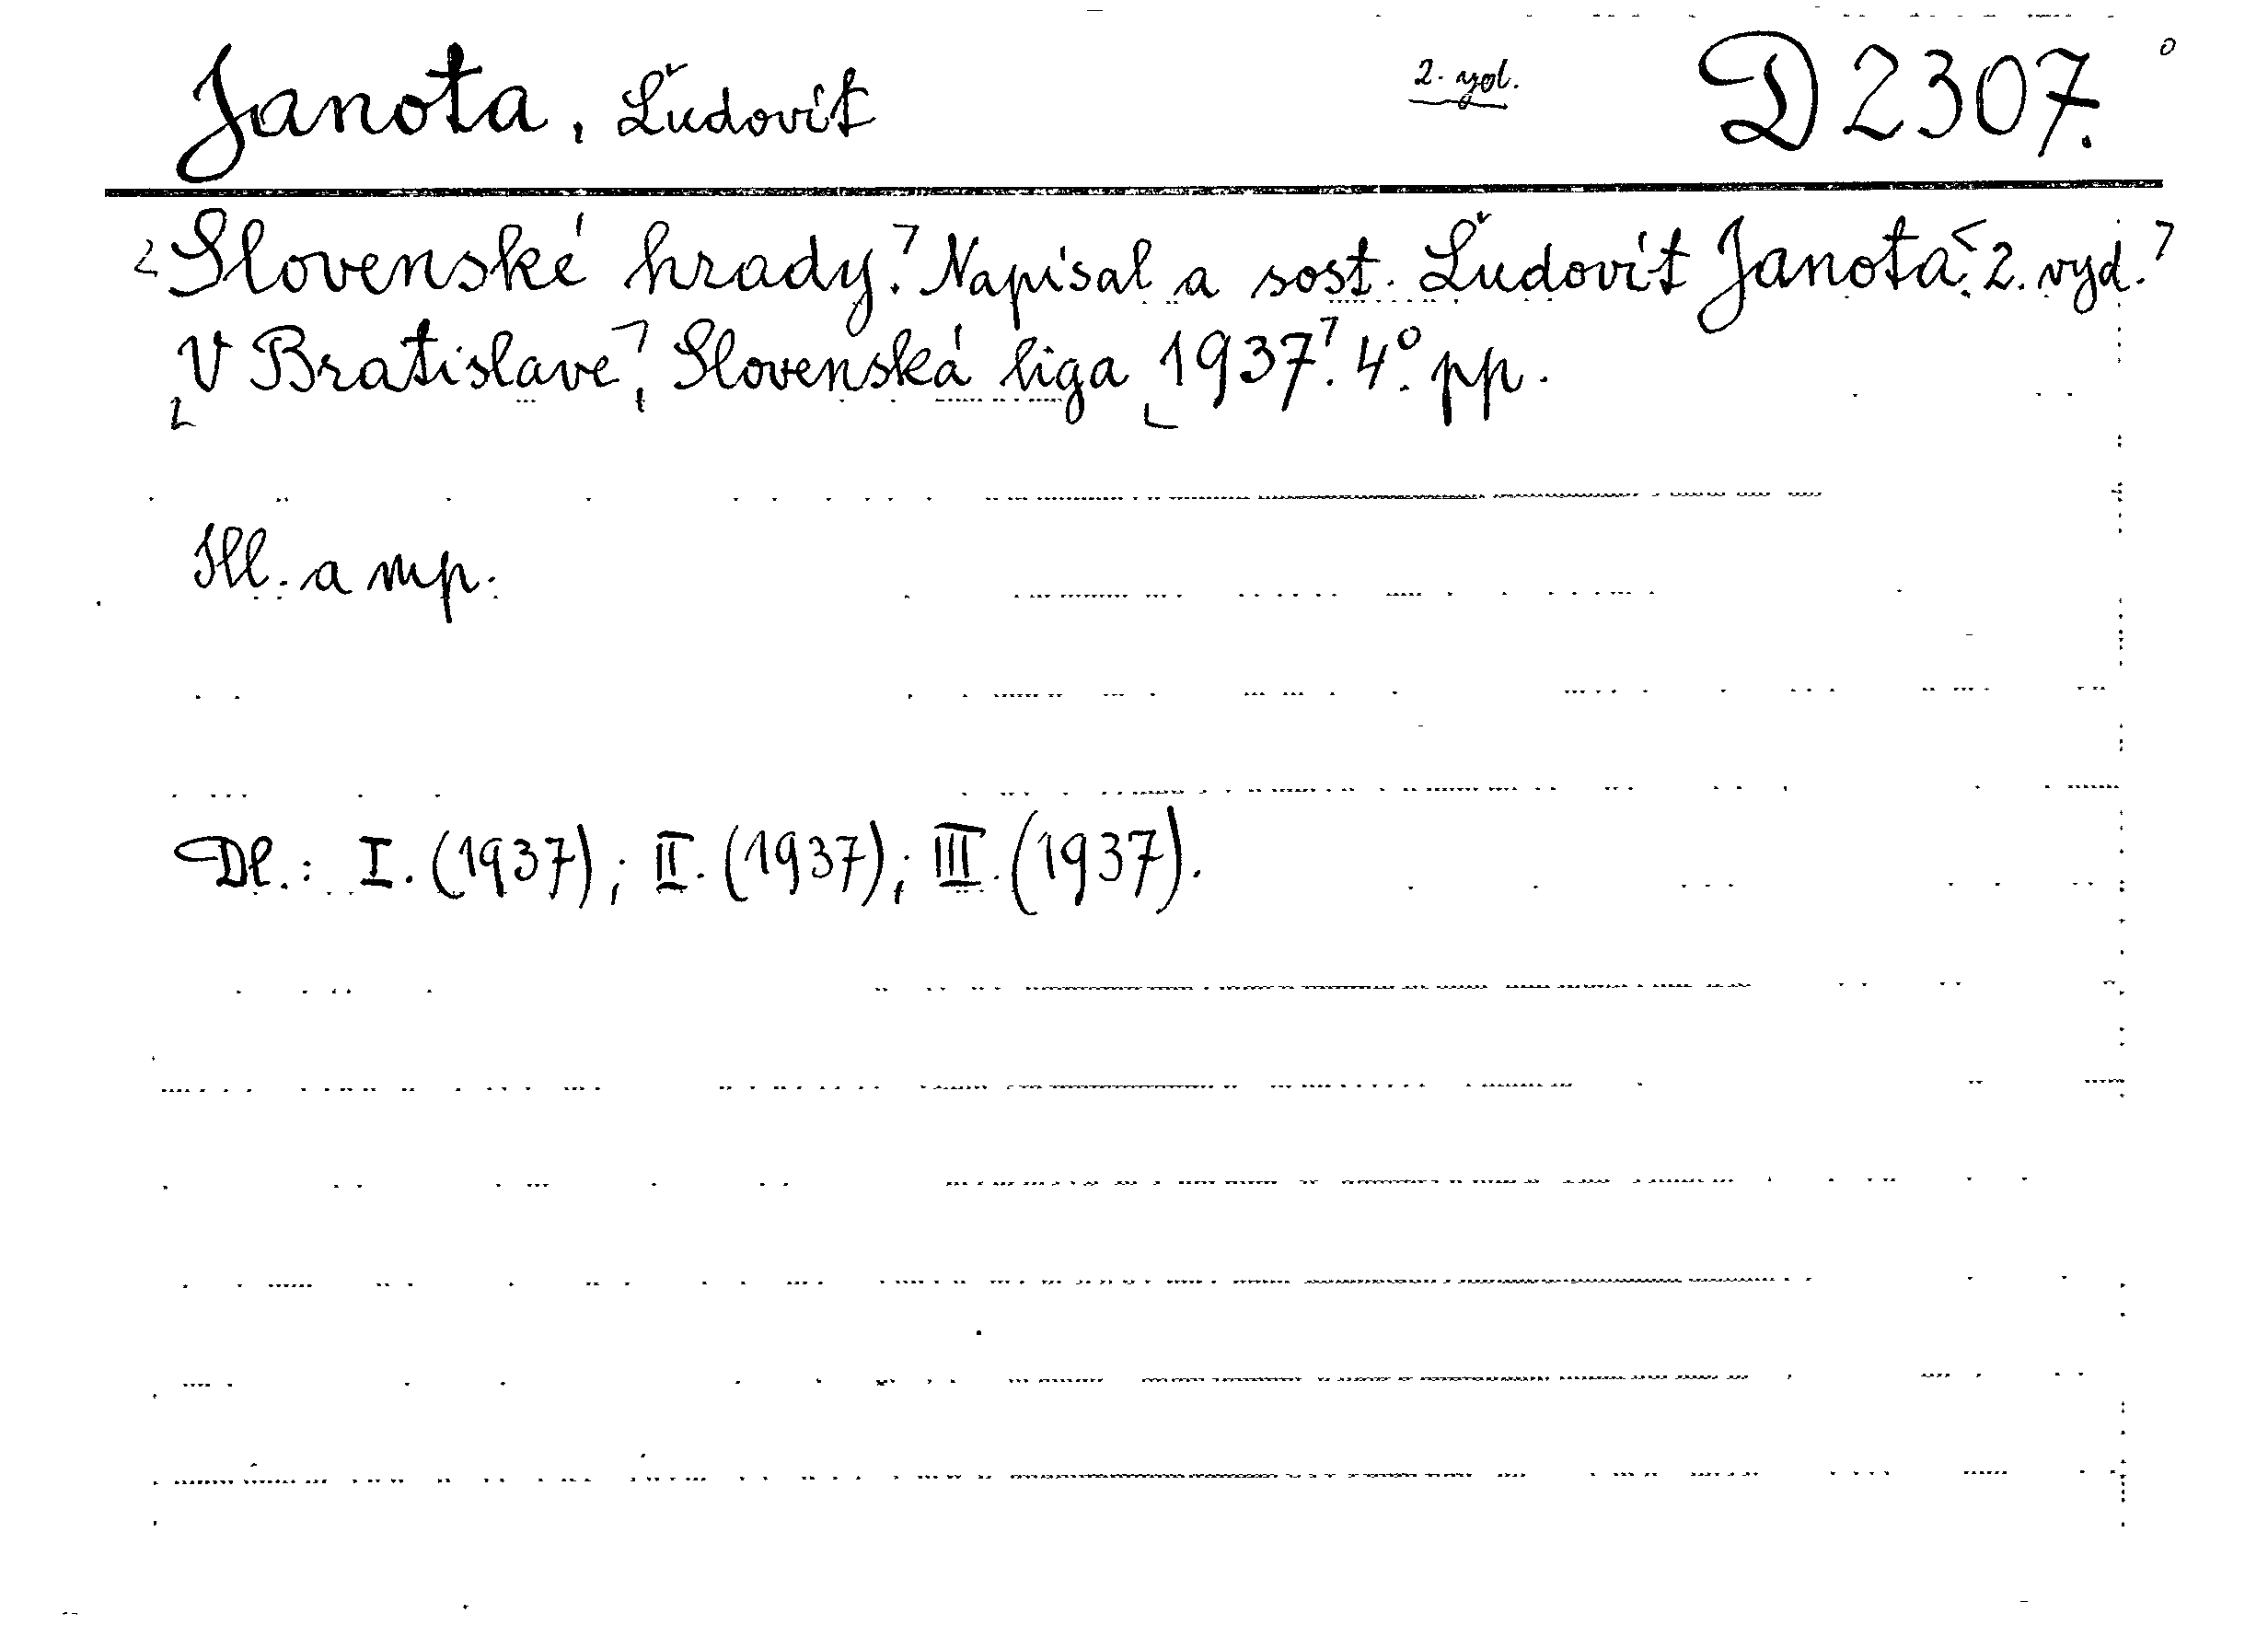 Janota, Ľudovít 2. vyd. D 2307.
Slovenské hrady. Napísal a sost. Ľudovít Janota. 2. vyd.
V Bratislave, Slovenská liga 1937. 4°. pp.
Ill. a mp.
Dl.: I. (1937); II. (1937); III. (1937).